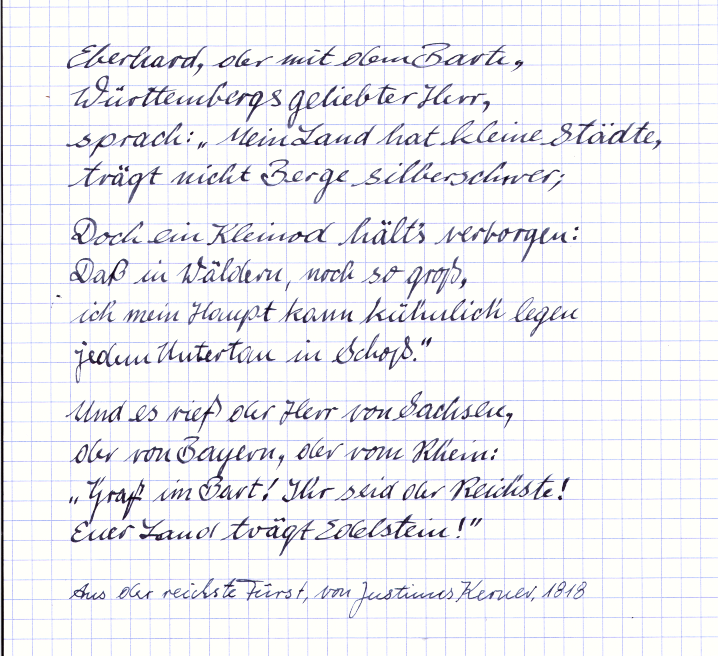 Eberhard, der mit dem Barte,
Württembergs geliebter Herr,
sprach: „Mein Land hat kleine Städte,
trägt nicht Berge silberschwer;
Doch ein Kleinod hält's verborgen:
Daß in Wäldern, noch so groß,
ich mein Haupt kann kühnlich legen
jedem Untertan in Schoß."
Und es rief der Herr von Sachsen,
der von Bayern, der vom Rhein:
„Graf im Bart! Ihr seid der Reichste!
Euer Land trägt Edelstein!"
Aus der reichste Fürst, von Justinus Kerner, 1818